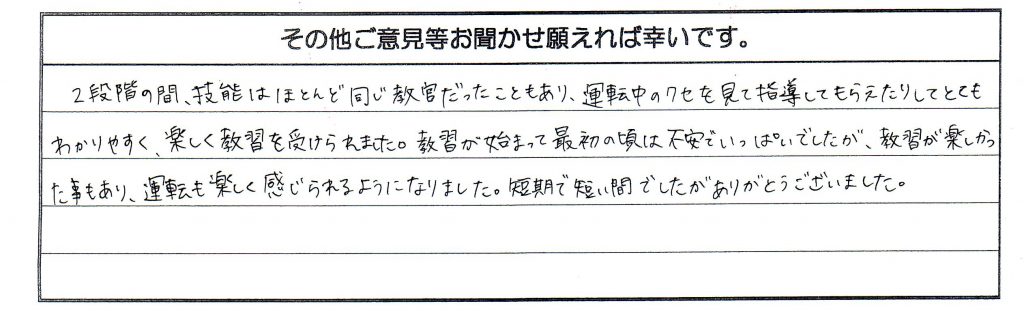 その他ご意見等お聞かせ願えれば幸いです。
2段階の間、技能はほとんど同じ教官だったこともあり、運転中のクセを見て指導してもらえたりしてとても
わかりやすく、楽しく教習を受けられました。教習が始まって最初の頃は不安でいっぱいでしたが、教習が楽しかっ
た事もあり、運転も楽しく感じられるようになりました。短期で短い間でしたがありがとうございました。